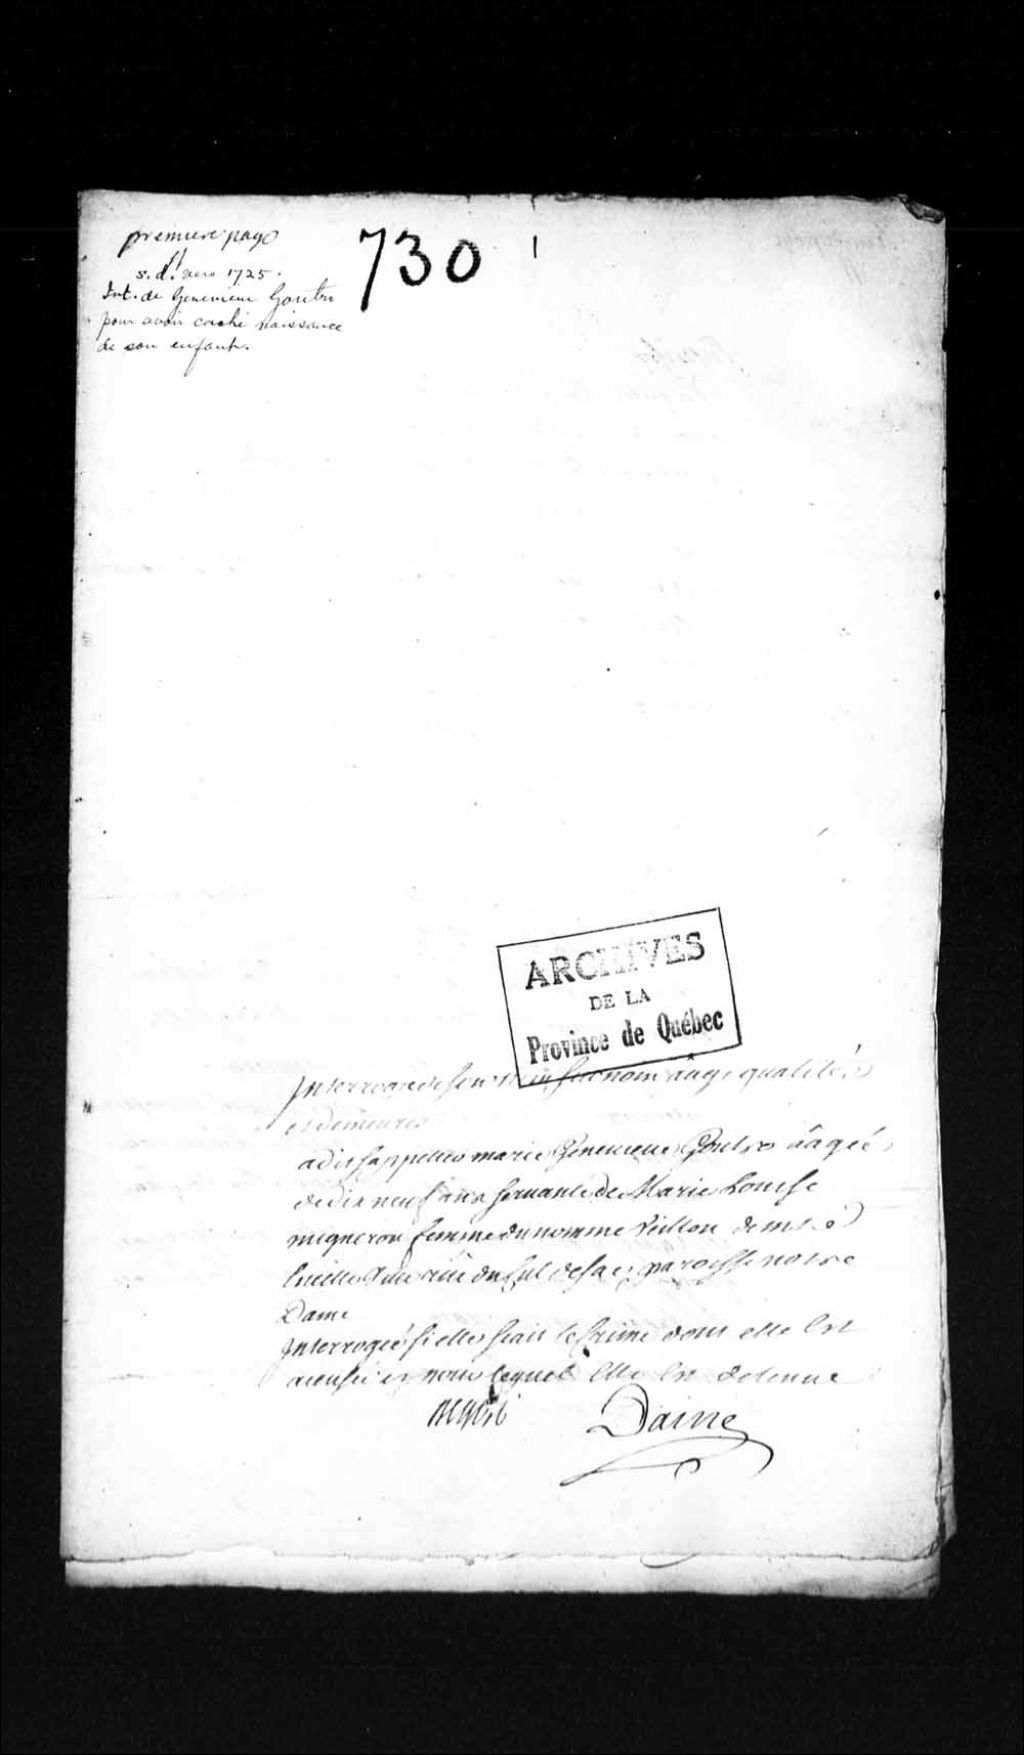 premiere page
730
1
s.d. vers 1725.
Int. de Genevieve Goutro
pour avoir caché naissance
de son enfant.
ARCHIVES
DE LA
Province de Québec
Interrogée de son nom surnom aage qualités
et demeure
a dit sappeller marie Genevieve Goutro aagée
de dix neuf ans servante de Marie Louise
migneron femme du nomme Vuillon
rue du Cul de sac paroisse notre
Dame
Interrogée si elle scait le Crime dont elle Est
accusée et pour lequel Elle Est detenue
Daine